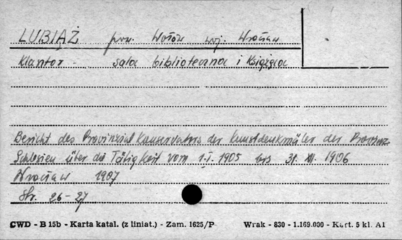 LUBIĄŻ pow. Wołów woj. Wrocław
klasztor - sala biblioteczna i Książęca
Bericht des Provinzial Konservators der Kunstdenkmäler der Provinz
Schlesien über die Tätigkeit vom 1.I. 1905 bis 31. XII. 1906
Wrocław 1907
Str. 26-27
CWD - B 15b - Karta katal. (z liniat.) - Zam. 1625/P Wrak - 830 - 1.169.000 - Kart. 5 kl. A1